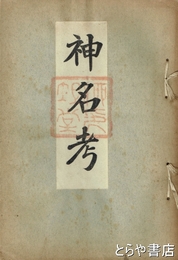 神名考
とらや書店